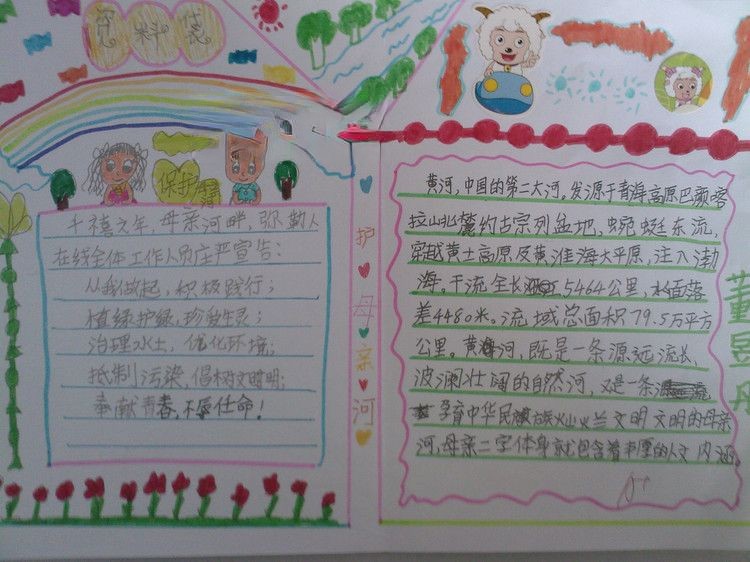 资料袋
保护
千禧之年,母亲河畔,弥勤人
在线全体工作人员庄严宣告:
从我做起,积极践行;
植绿护绿,珍爱生灵;
治理水土,优化环境;
抵制污染,倡树文明;
奉献青春,不辱任命!
护母亲河
黄河,中国的第二大河。发源于青海高原巴颜客
拉山北麓约古宗列盆地,蜿蜒东流,
穿越黄土高原及黄淮海大平原,注入渤
海。干流全长5464公里,水面落
差4480米。流域总面积79.5万平方
公里。黄河,既是一条源远流长、
波澜壮阔的自然河,又是一条
孕育中华民族灿兰文明文明的母亲
河,母亲二字体身就包含着丰厚的人文内涵。
董昱